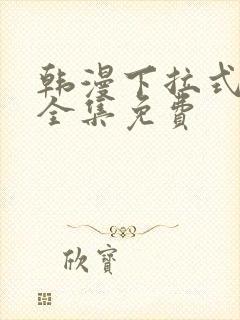 韩漫下拉式
全集免费
欣寳